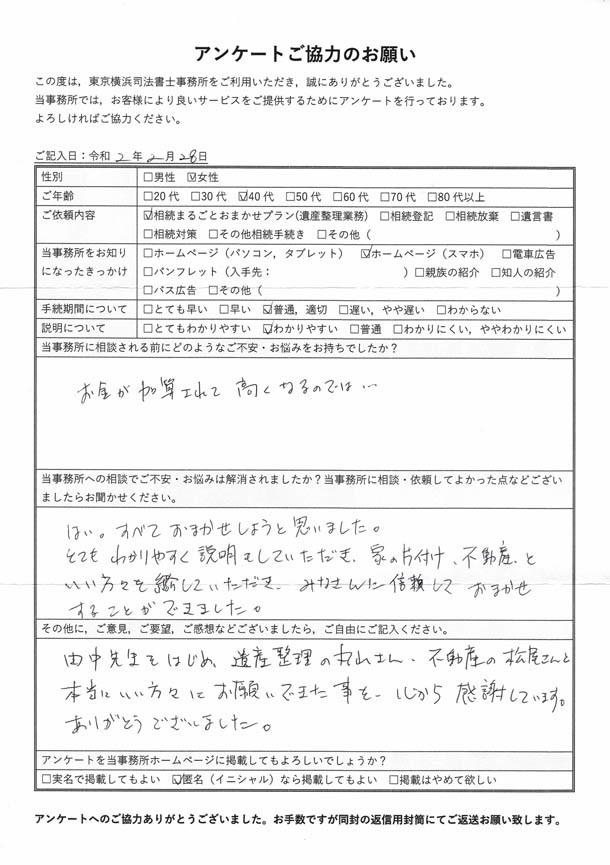 アンケートご協力のお願い
この度は，東京横浜司法書士事務所をご利用いただき，誠にありがとうございました。
当事務所では，お客様により良いサービスをご提供するためにアンケートを行っております。
よろしければご協力ください。
ご記入日：令和 2 年 2 月 28 日
性別 □男性 ☑女性
ご年齢 □20代 □30代 ☑40代 □50代 □60代 □70代 □80代以上
ご依頼内容 ☑相続まるごとおまかせプラン(遺産整理業務) □相続登記 □相続放棄 □遺言書
□相続対策 □その他相続手続き □その他（ ）
当事務所をお知り □ホームページ（パソコン，タブレット） ☑ホームページ（スマホ） □電車広告
になったきっかけ □パンフレット（入手先： ）□親族の紹介 □知人の紹介
□バス広告 □その他（ ）
手続期間について □とても早い □早い ☑普通，適切 □遅い，やや遅い □わからない
説明について □とてもわかりやすい ☑わかりやすい □普通 □わかりにくい，ややわかりにくい
当事務所に相談される前にどのようなご不安・お悩みをお持ちでしたか？
お金が加算されて 高くなるのでは…
当事務所への相談でご不安・お悩みは解消されましたか？当事務所に相談・依頼してよかった点などござい
ましたらお聞かせください。
はい。すべておまかせしようと思いました。
とてもわかりやすく説明もしていただき、家の片付け、不動産、と
いい方々を紹していただき、みなさんに信頼して おまかせ
することができました。
その他に，ご意見，ご要望，ご感想などございましたら，ご自由にご記入ください。
田中先生をはじめ、遺産整理の丸山さん、不動産の松尾さんと
本当にいい方々にお願いできた事を、心から 感謝しています。
ありがとうございました。
アンケートを当事務所ホームページに掲載してもよろしいでしょうか？
□実名で掲載してもよい ☑匿名（イニシャル）なら掲載してもよい □掲載はやめて欲しい
アンケートへのご協力ありがとうございました。お手数ですが同封の返信用封筒にてご返送お願い致します。